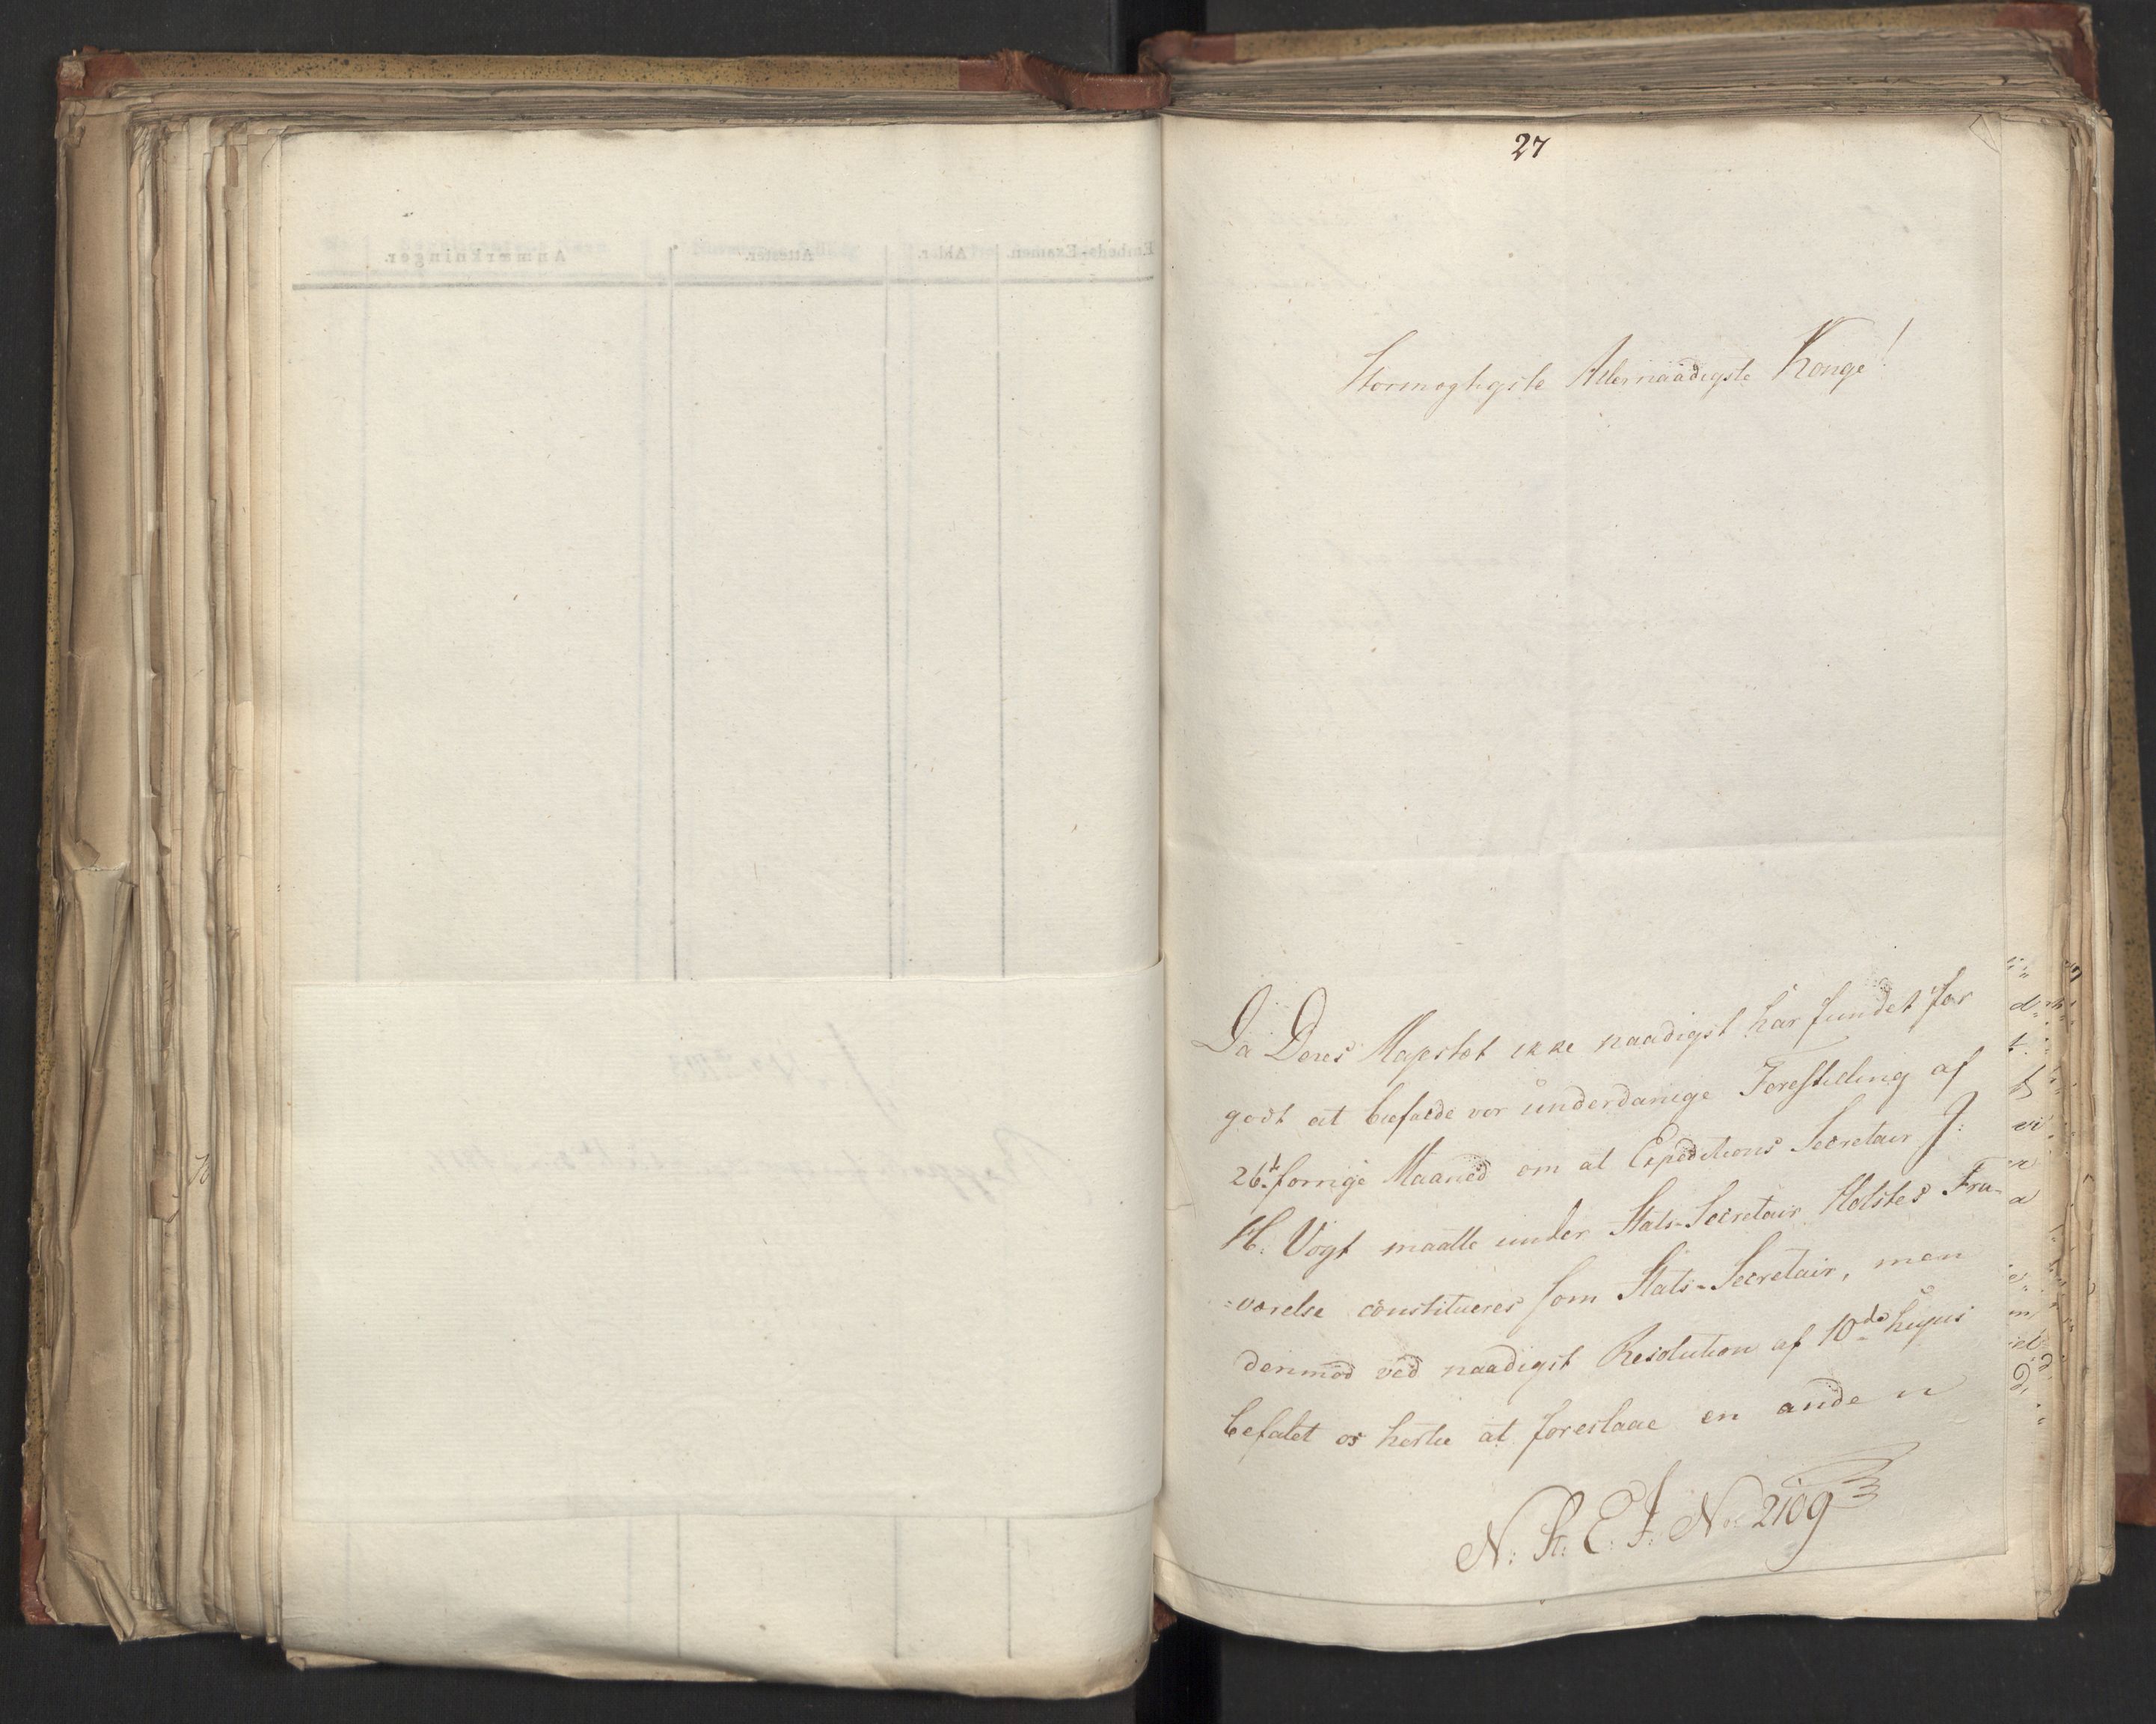 27
Stormægtigste Allernaadigste Konge!
Da Deres Majestæt ikke naadigst har fundet for
godt at biefalde vor underdanige Forestilling af
26. forrige Maaned om at Expeditions Secretair J:
H: Vogt maatte under Stats-Secretair Holstes Fra-
=værelse constitueres som Stats-Secretair, men
derimod ved naadigst Resolution af 10de hujus
befalet os hertil at foreslaae en anden
N: R: E. J: No 2109
Anmærkninger.
Attester.
Akt.r.
Embeds-Examen.